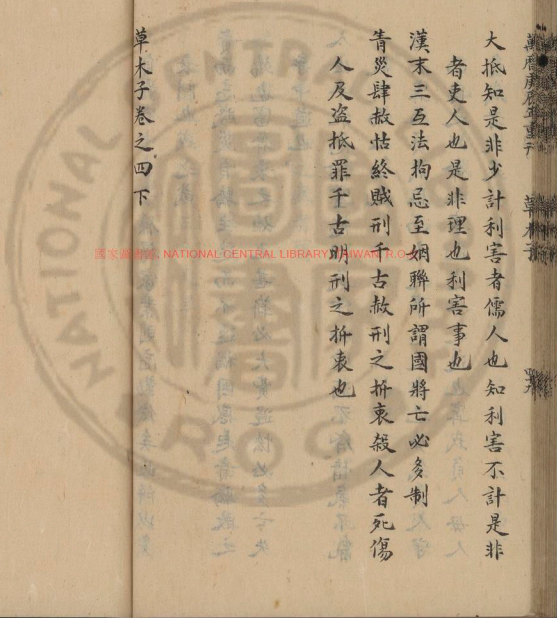 萬曆庚辰年重刊
大抵知是非少計利害者儒人也知利害不計是非
者吏人也是非理也利害事也
漢末三互法拘忌至姻聯所謂國將亡必多制
青災肆赦怙終賊刑千古赦刑之折衷殺人者死傷
人及盗抵罪千古明刑之折衷也
草木子卷之四下
國家圖書館, NATIONAL CENTRAL LIBRARY, TAIWAN R.O.C